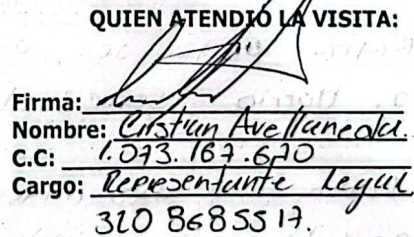 QUIEN ATENDIÓ LA VISITA:
Firma:
Nombre: Cristian Avellaneda.
C.C: 1.073.167.620
Cargo: Representante Legal
320 8685517.